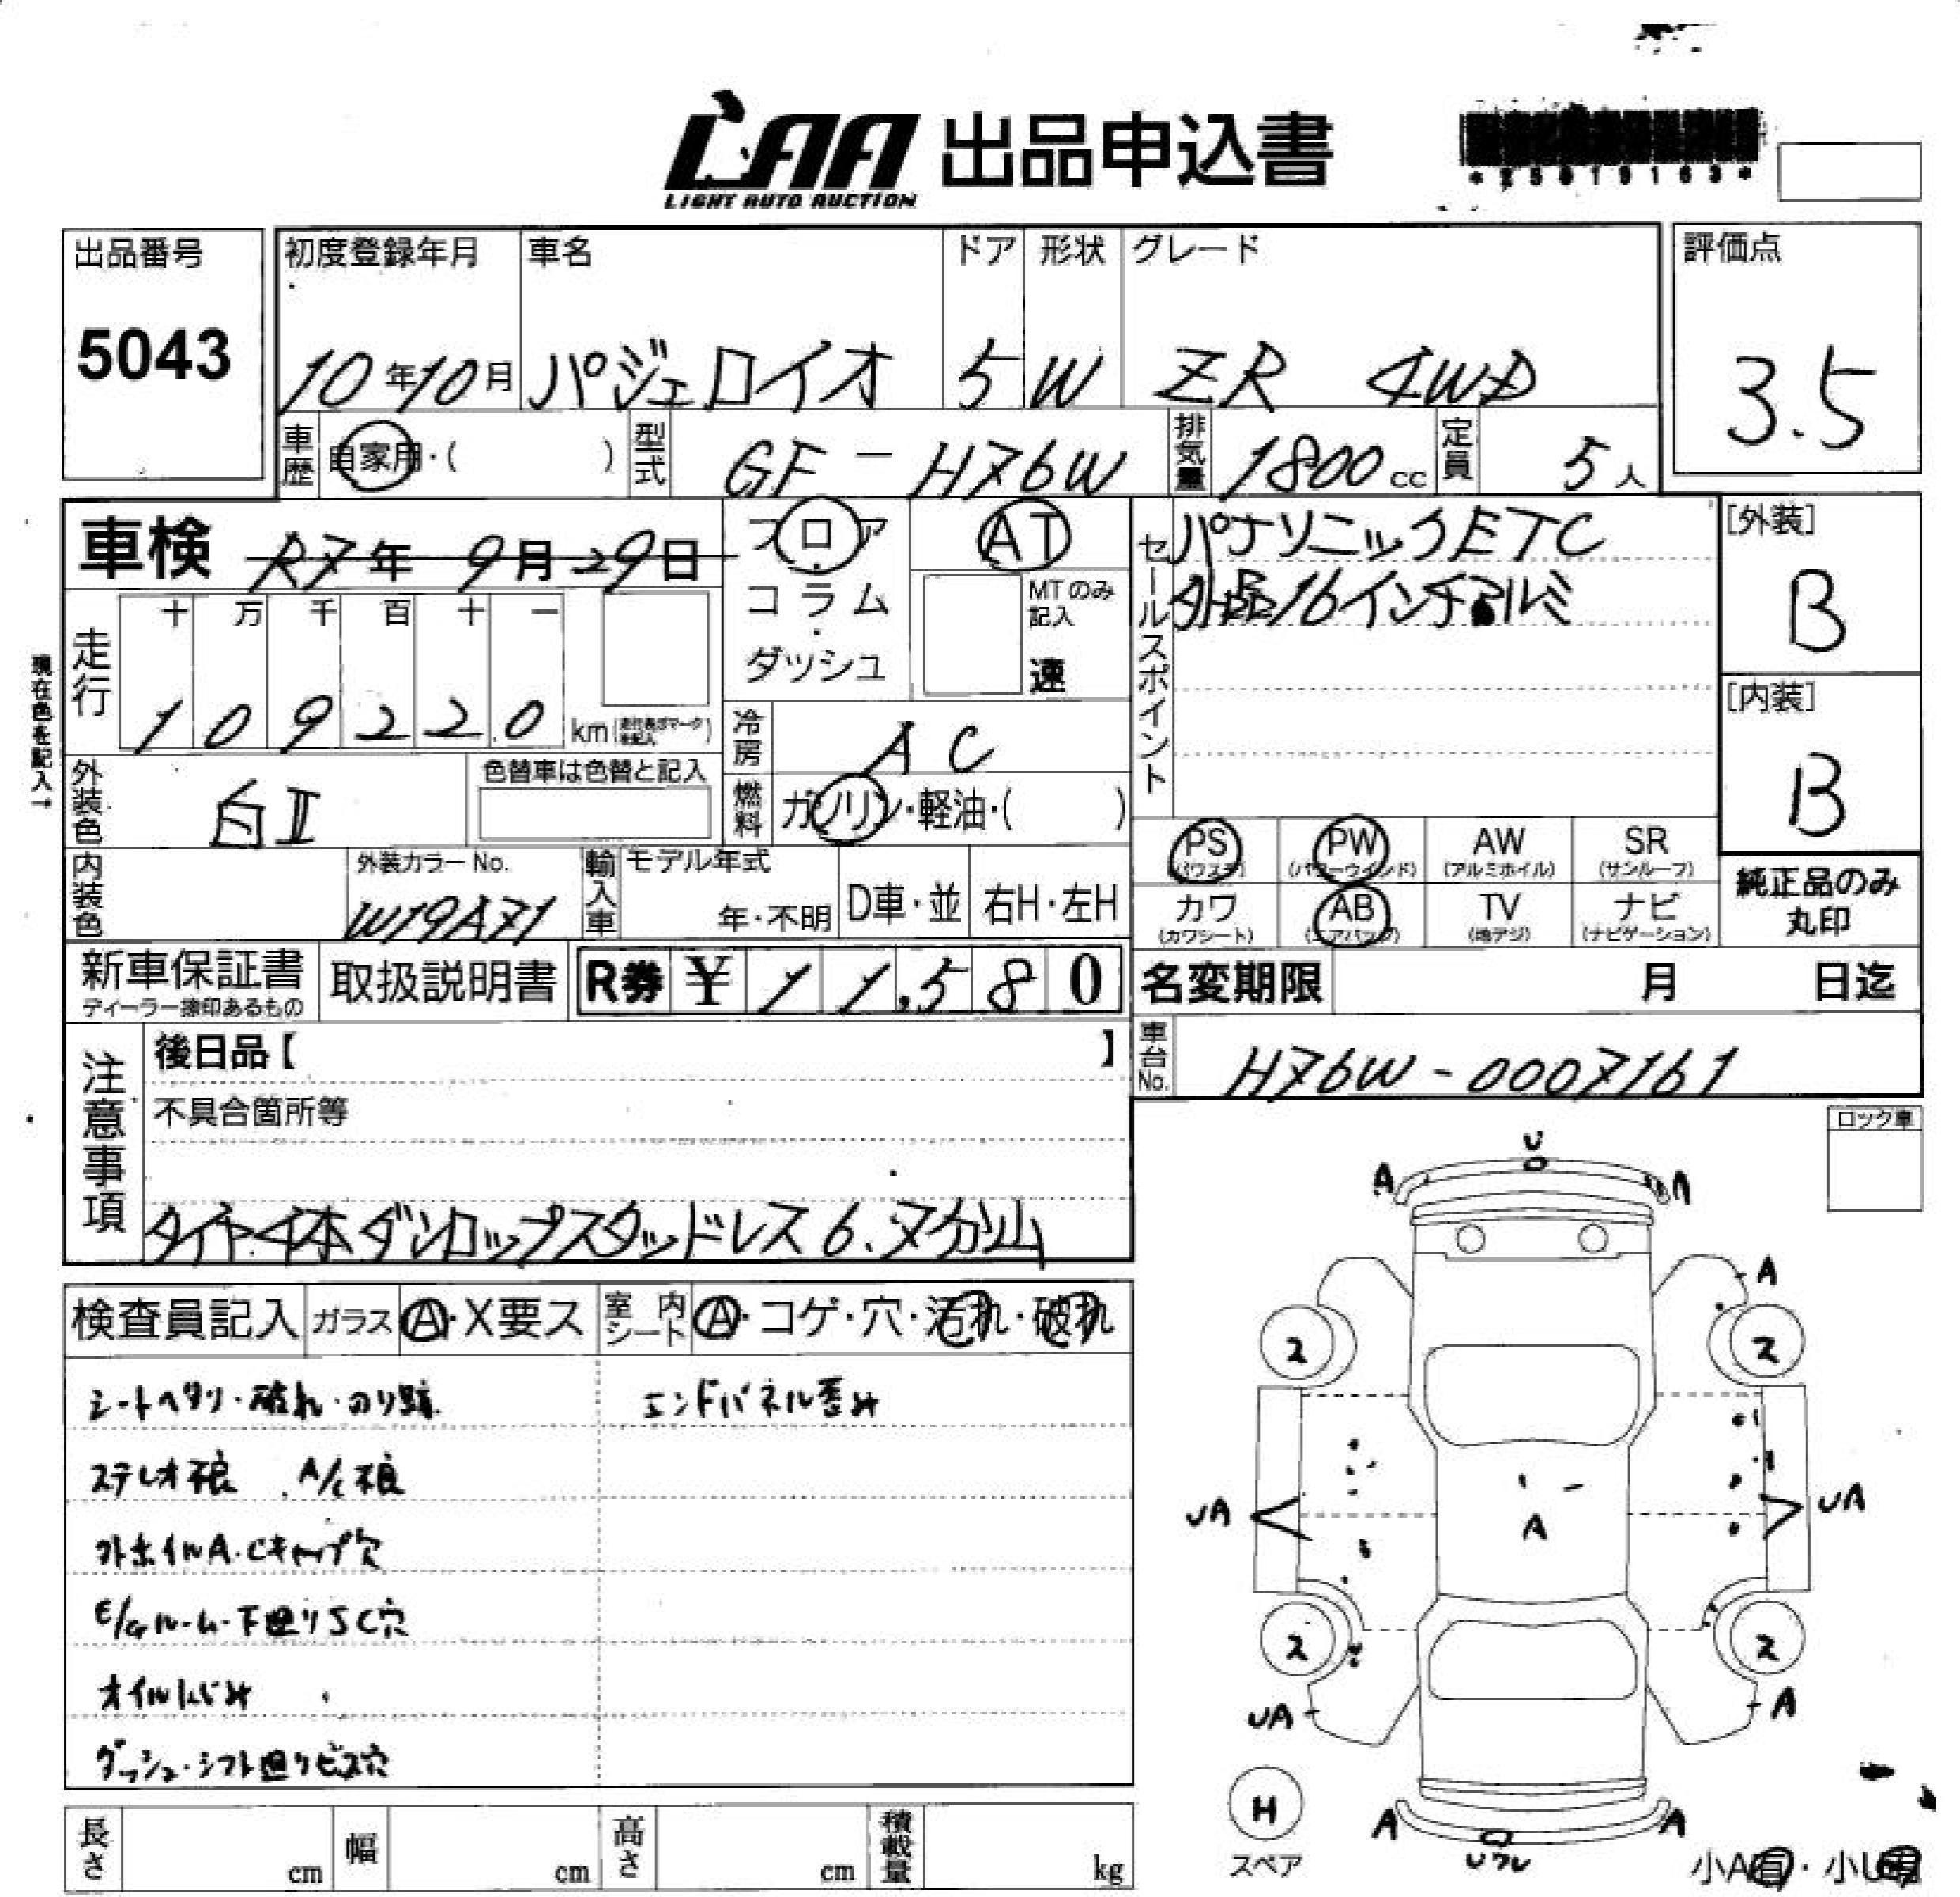 LAA 出品申込書
LIGHT AUTO AUCTION
出品番号
5043
初度登録年月 車名 ドア 形状 グレード
10年10月 パジェロイオ 5 W ZR 4WD
評価点
3.5
車歴 自家用・( ) 型式 GF-H76W 排気量 1800cc 定員 5人
車検 R7年 9月29日
フロア
コラム
・
ダッシュ
AT
MTのみ
記入
速
セールスポイント
パナソニックETC
外品16インチアルミ
[外装]
B
[内装]
B
現在色を記入→
走行 十 万 千 百 十 一
1 0 9 2 2 0 km
冷房 AC
燃料 ガソリン・軽油・( )
外装色 白II 色替車は色替と記入
内装色 外装カラーNo. W19A71
輸入車 モデル年式 年・不明 D車・並 右H・左H
PS (パワステ) PW (パワーウインド) AW (アルミホイル) SR (サンルーフ)
カワ (カワシート) AB (エアバッグ) TV (地デジ) ナビ (ナビゲーション)
純正品のみ
丸印
新車保証書 取扱説明書 R券 ¥ 11,580
ディーラー捺印あるもの
名変期限 月 日迄
車台No. H76W-0007161
注意事項
後日品【 】
不具合箇所等
タイヤ4本ダンロップスタッドレス6.7分山
ロック車
検査員記入 ガラス A・X要ス 室内シート A・コゲ・穴・汚れ・破れ
シートヘタリ・破れ・のり跡 エンドパネル歪み
ステレオ不良 A/C不良
外ホイルA・Cキャップ穴
E/Gルーム・下廻りSC穴
オイルにじみ
ダッシュ・シフト廻りビス穴
U
A A
A
2 2
UA A UA
2 2
UA A
H
スペア
A A
小A有・小U有
長さ cm 幅 cm 高さ cm 積載量 kg